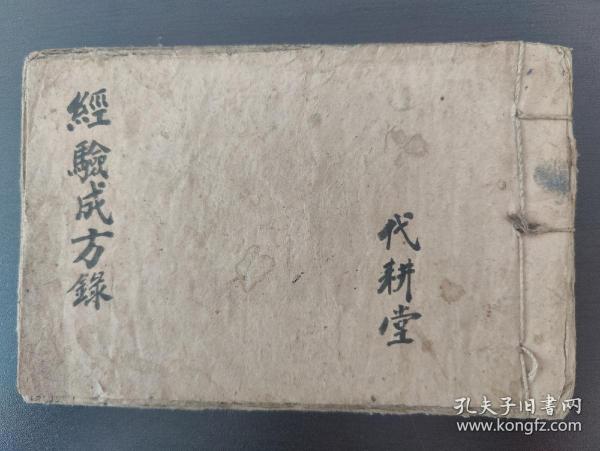 經驗成方錄
代耕堂
孔夫子旧书网
www.kongfz.com